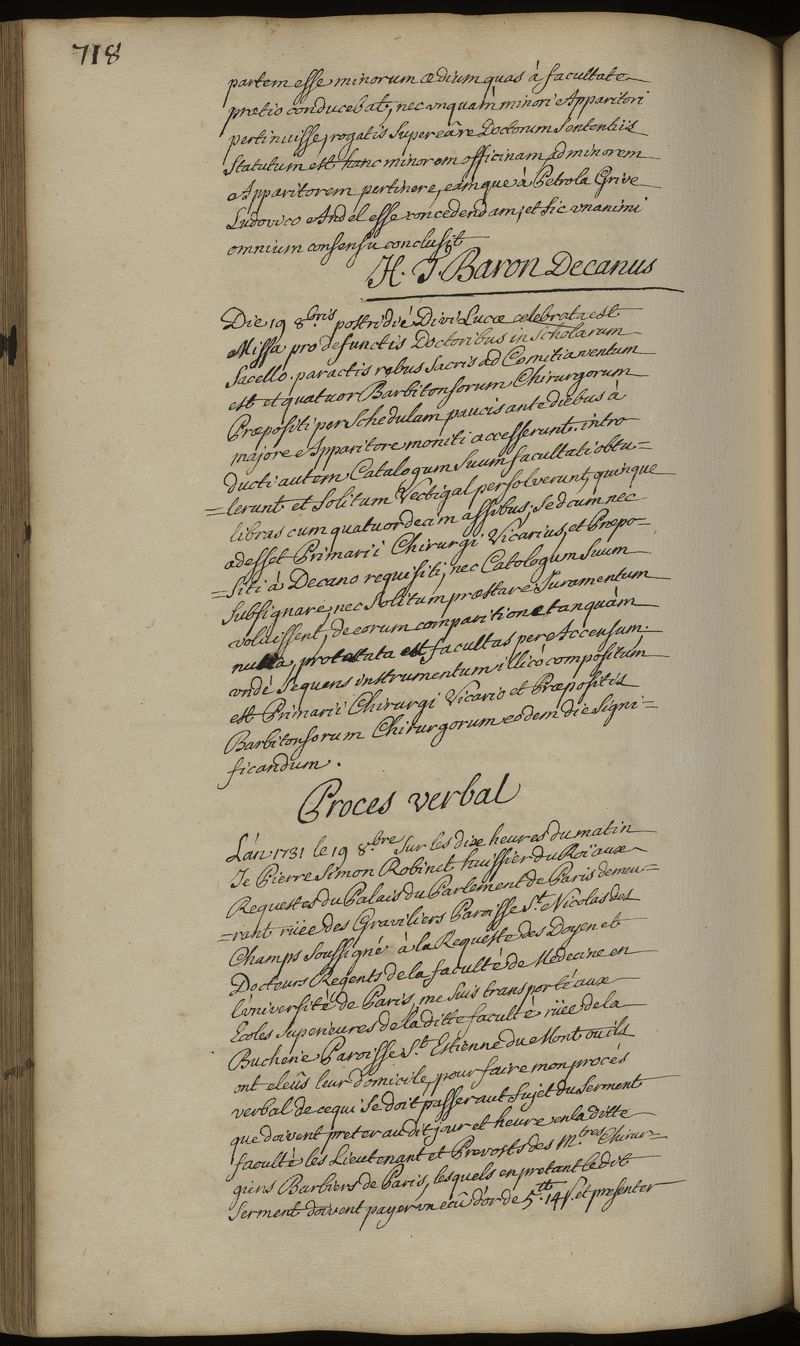 718
partem esse minorum ædium quas à facultate
prætio conducebat, nec vnquàm minori Apparitori
pertinuisse, rogatis super eâ re Doctorum sententiis
statutum est hanc minorem officinam ad minorem
Apparitorem pertinere, eamque à Petro la Grive
Ludovico Andel esse concedendam, et sic vnanimi
omnium consensu conclusit
H. T. Baron Decanus
Die 19 8.bris postridié Divi Lucæ celebrata est
Missa pro defunctis Doctoribus in Scholarum
Sacello. paractis rebus sacris ad Comitia ventum
est et quatuor Barbitonsorum Chirurgorum
Præpositi per schedulam paucis ante diebus à
majore Apparitore moniti accesserunt. intro
ducti autem Catalogum suum facultati obtu=
=lerunt et solitum Vectigal persolverunt, quinque
libras cum quatuordecim assibus; sed cum nec
adesset Primarii Chirurgi Vicarius, et Præpo=
=siti à Decano requisiti, nec Catologum suum
subsignare, nec solitum præstare Juramentum
voluissent, de eorum comparitione tanquàm
nulla, protestata est facultas per Accensum.
vndé sequens instrumentum illicò compositum
est Primarii Chirurgi Vicario et Præpositis
Barbitonsorum Chirurgorum eodem die signi=
ficandum.
Proces verbal
L'án 1731 le 19 8.bre sur les dix heures du matin
Je Pierre Simon Robinet huissier du Roi aux
Requestes du Palais du Parlement de Paris demeu=
=rant rüée des Graviliers Paroisse S.t Nicolas des
Champs soussigné à la Requeste des Doyen et
Docteurs Regents de la faculté de Medecine en
l'université de Paris, me suis transporté aux
Ecoles superieures de la ditte faculté rüée de la
Bucherie Paroisse S.t Estienne du Mont ou ils
ont eleûs leur domicile, pour faire mon procés
verbal de ce qui se doit passer aut sujet du serment
que doivent preter au dit jour et heure en la ditte
faculté les Lieutenant et Prevosts des M.tres Chirur=
giens Barbiers de Paris, lesquels en pretant le dit
serment doivent payer vn ecû d'or de 5.tt 14 s. et presenter